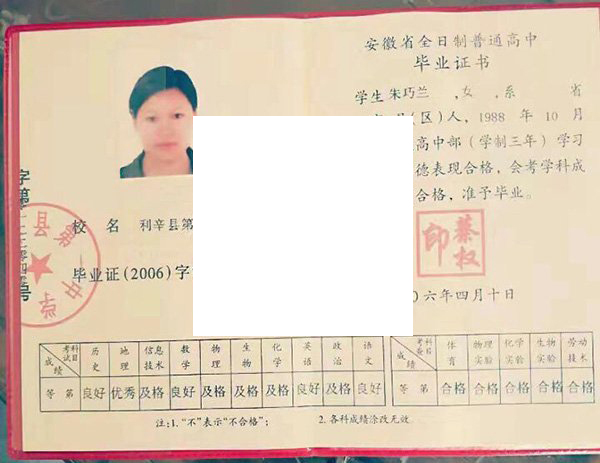 安徽省全日制普通高中
毕业证书
学生 朱巧兰 ,女 ,系 省
(区)人, 1988 年 10 月
高中部(学制三年)学习
德表现合格, 会考学科成
合格, 准予毕业。
校 名 利辛县第
毕业证(2006)字
字第
号
县第
中学
蔡权
印
六年四月十日
考试科目 历史 地理 信息技术 数学 物理 生物 化学 英语 政治 语文
成绩等第 良好 优秀 及格 良好 及格 及格 及格 良好 及格 良好
考查科目 体育 物理实验 化学实验 生物实验 劳动技术
成绩等第 合格 合格 合格 合格 合格
注:1. "不"表示"不合格"; 2. 各科成绩涂改无效.